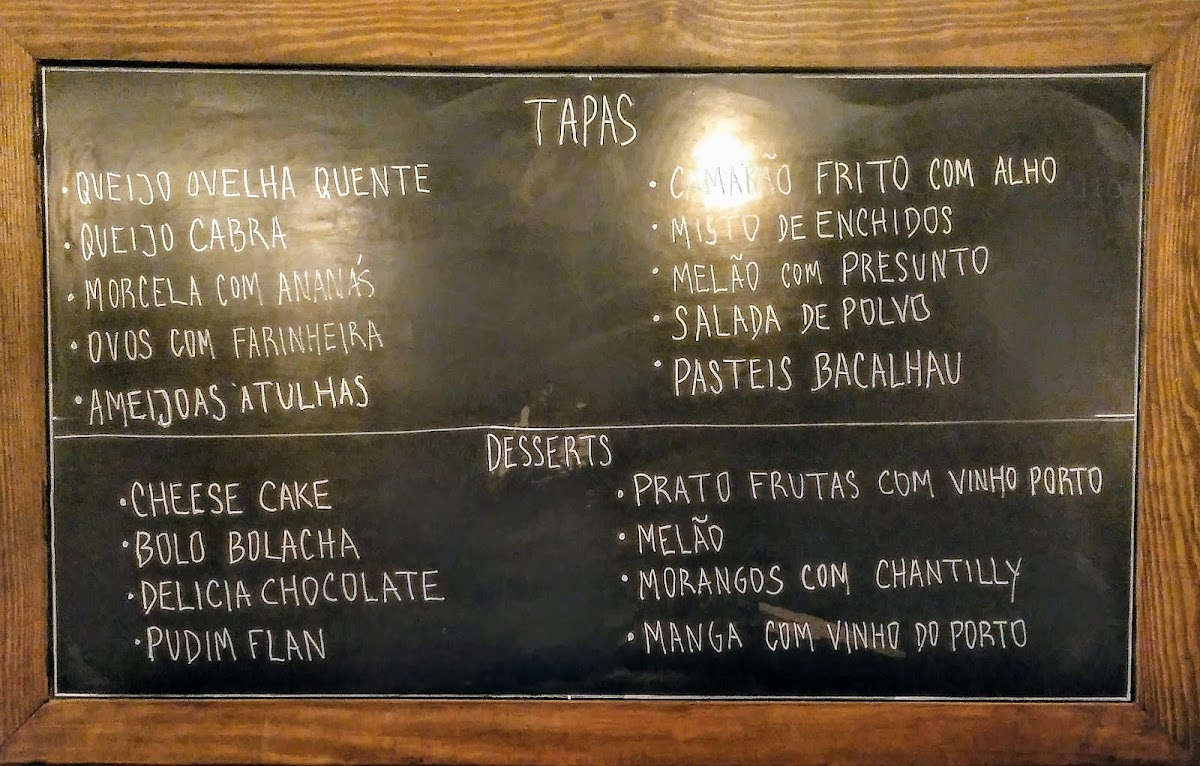 TAPAS
• QUEIJO OVELHA QUENTE
• QUEIJO CABRA
• MORCELA COM ANANÁS
• OVOS COM FARINHEIRA
• AMEIJOAS ATULHAS
• CAMARÃO FRITO COM ALHO
• MISTO DE ENCHIDOS
• MELÃO COM PRESUNTO
• SALADA DE POLVO
• PASTEIS BACALHAU
DESSERTS
• CHEESE CAKE
• BOLO BOLACHA
• DELICIA CHOCOLATE
• PUDIM FLAN
• PRATO FRUTAS COM VINHO PORTO
• MELÃO
• MORANGOS COM CHANTILLY
• MANGA COM VINHO DO PORTO